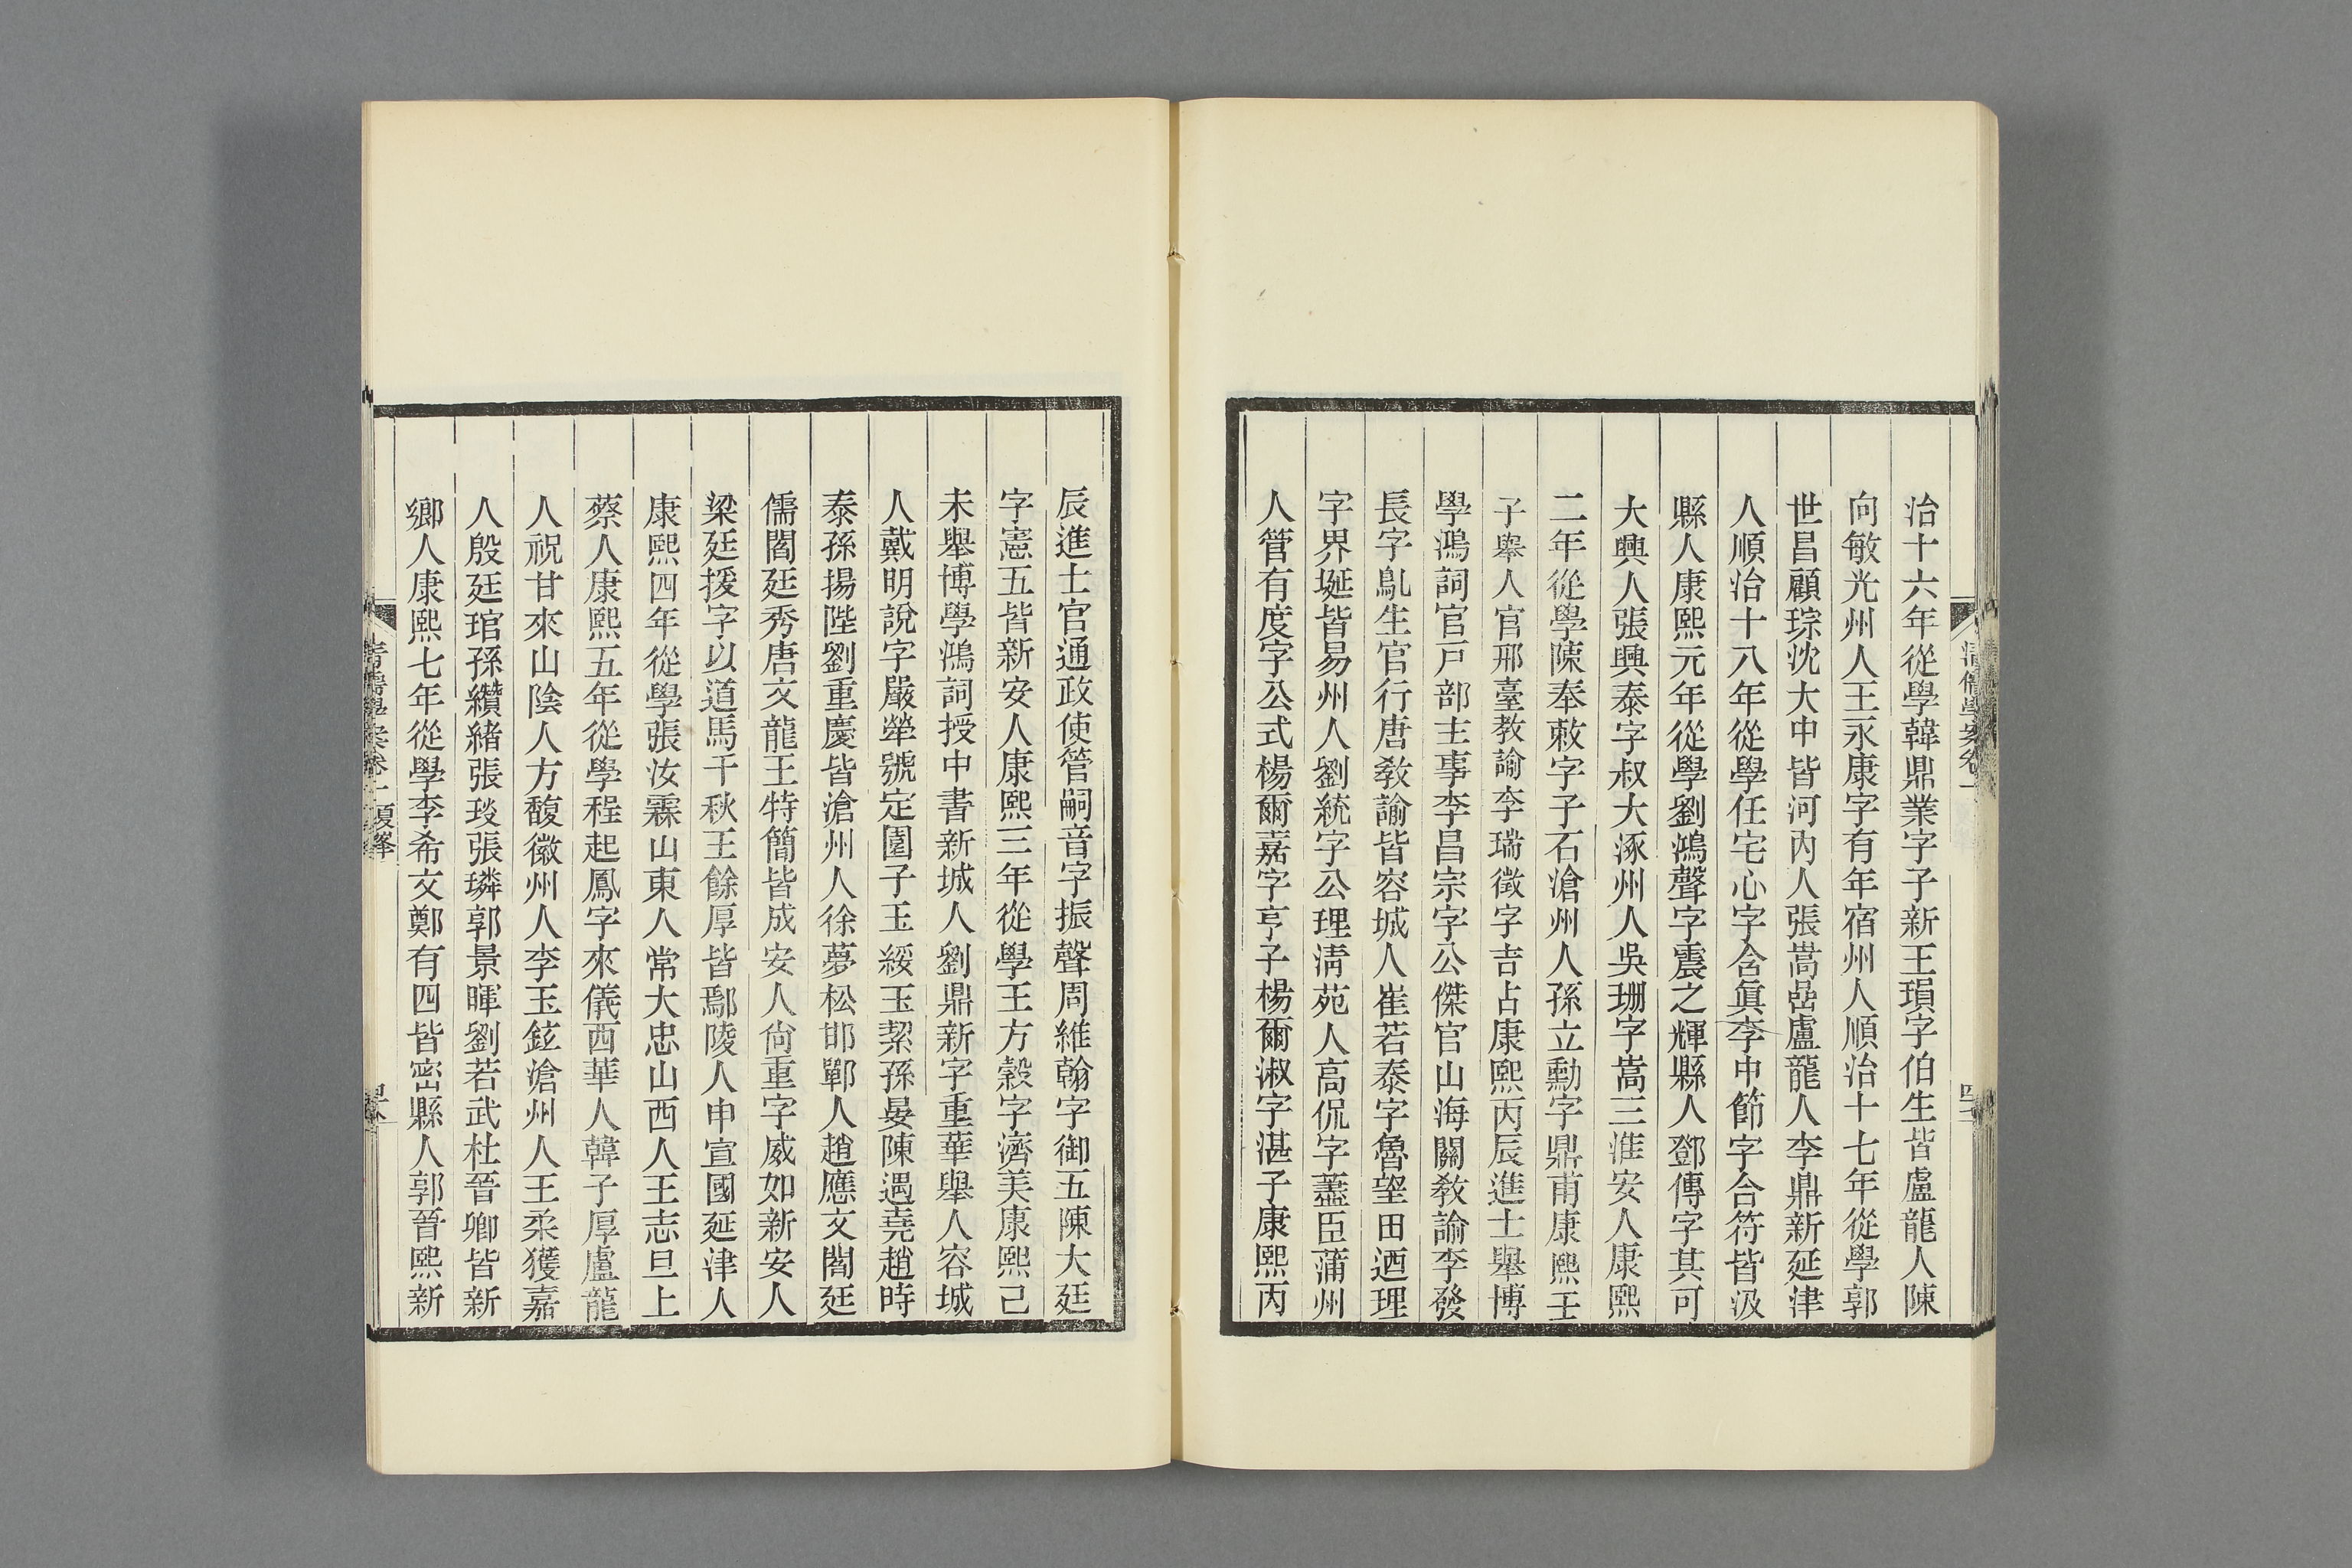 治十六年從學韓鼎業字子新王頊字伯生皆盧龍人陳
向敏光州人王永康字有年宿州人順治十七年從學郭
世昌顧琮沈大中皆河內人張嵩嵒盧龍人李鼎新延津
人順治十八年從學任宅心字含眞李中節字合符皆汲
縣人康熙元年從學劉鴻聲字震之輝縣人鄧傳字其可
大興人張興泰字叔大涿州人吳珊字嵩三淮安人康熙
二年從學陳奉敕字子石滄州人孫立勳字鼎甫康熙壬
子舉人官邢臺教諭李瑞徵字吉占康熙丙辰進士舉博
學鴻詞官戸部主事李昌宗字公傑官山海關敎諭李發
長字亂生官行唐敎諭皆容城人崔若泰字魯望田迺理
字界埏皆易州人劉統字公理淸苑人高侃字藎臣蒲州
人管有度字公式楊爾嘉字亨子楊爾淑字湛子康熙丙
辰進士官通政使管嗣音字振聲周維翰字御五陳大廷
字憲五皆新安人康熙三年從學王方穀字濟美康熙己
未舉博學鴻詞授中書新城人劉鼎新字重華舉人容城
人戴明說字嚴犖號定園子玉綬玉絜孫晏陳遇堯趙時
泰孫揚陛劉重慶皆滄州人徐夢松邯鄲人趙應文閻廷
儒閻廷秀唐文龍王特簡皆成安人尙重字威如新安人
梁廷援字以道馬千秋王餘厚皆鄢陵人申宣國延津人
康熙四年從學張汝霖山東人常大忠山西人王志旦上
蔡人康熙五年從學程起鳳字來儀西華人韓子厚盧龍
人祝甘來山陰人方馥徽州人李玉鉉滄州人王柔獲嘉
人殷廷琯孫纘緒張琰張璘郭景暉劉若武杜晉卿皆新
鄉人康熙七年從學李希文鄭有四皆密縣人郭晉熙新
清儒學案卷一 夏峯